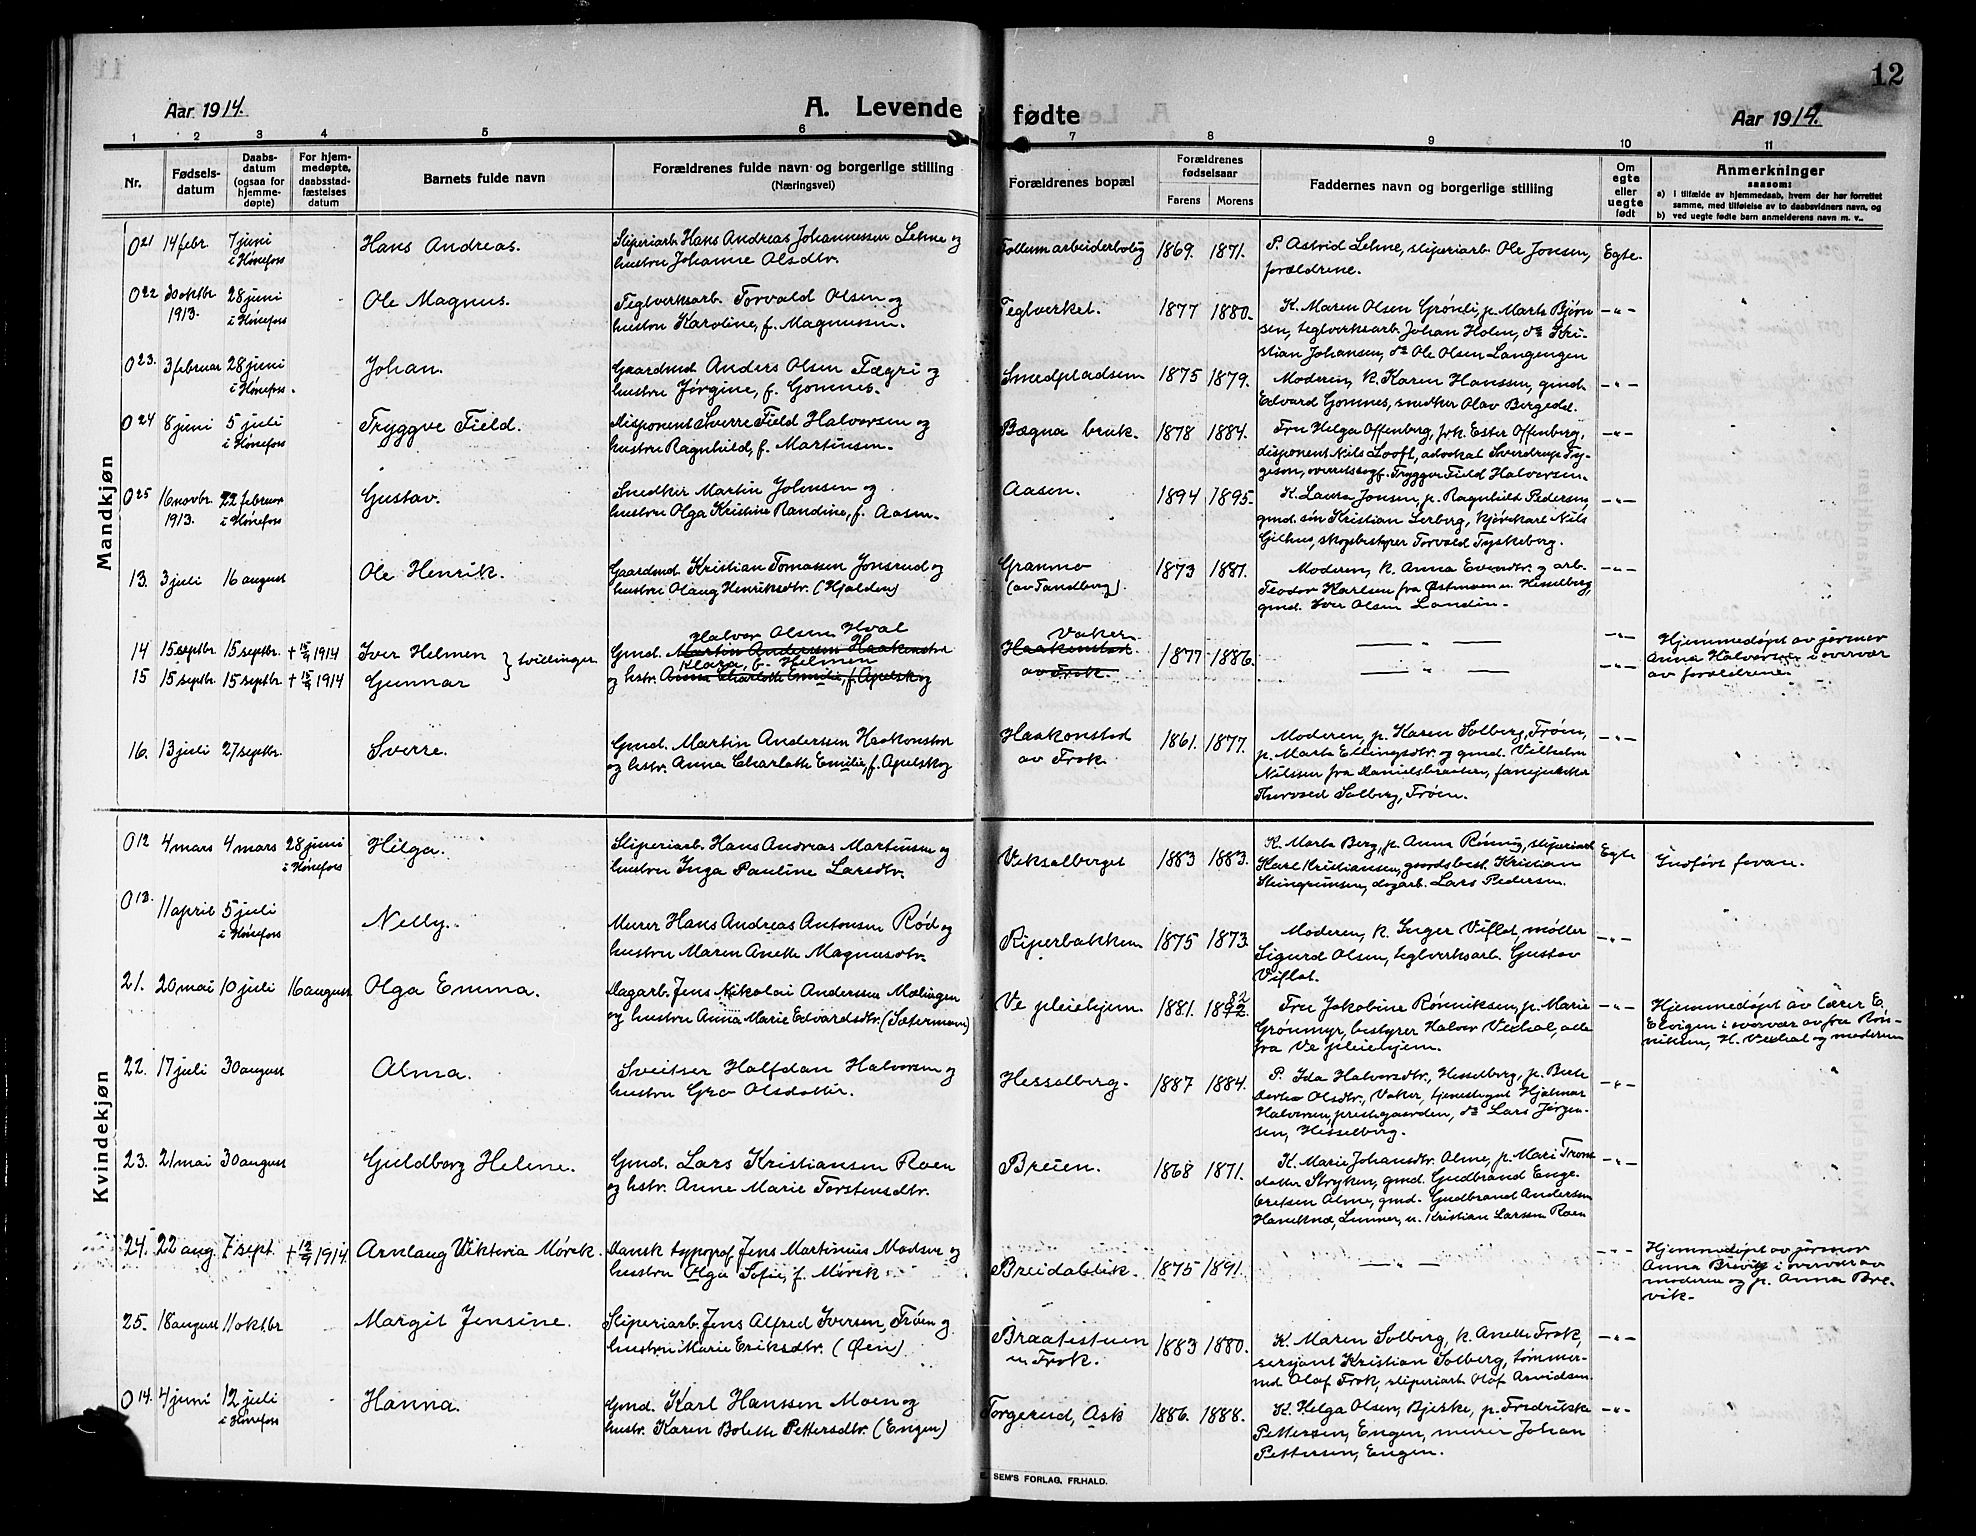 12
Aar 1914.
A. Levende fødte
Aar 1914.
1 2 3 4 5 6 7 8 9 10 11
Nr.
Fødselsdatum
Daabsdatum (ogsaa for hjemmedøpte)
For hjemmedøpte, daabsstadfæstelses datum
Barnets fulde navn
Forældrenes fulde navn og borgerlige stilling
(Næringsvei)
Forældrenes bopæl
Forældrenes fødselsaar
Farens Morens
Faddernes navn og borgerlige stilling
Om egte eller uegte født
Anmerkninger
saasom:
a) i tilfælde av hjemmedaab, hvem der har forrettet samme, med tilføielse av to daabsvidners navn, og
b) ved uegte fødte barn anmelderens navn m. v..
Mandkjøn
021 14 febr. 7 juni i Hønefoss Hans Andreas. Sliperiarb. Hans Andreas Johannessen Lehne og Follum arbeiderbolig 1869. 1871. P. Astrid Lehne, sliperiarb. Ole Jonsen, Egte.
hustru Johanne Olsdtr. forældrene.
022 30 oktbr. 1913. 28 juni i Hønefoss Ole Magnus. Teglverksarb. Torvald Olsen og Teglverket. 1877 1880. K. Maren Olsen Grønli, p. Marte Bjørn- -"-
hustru Karoline, f. Magnussen. sen, teglverksarb. Johan Holen, do Kri-
stian Johansen, do Ole Olsen Langengen
023. 3 februar 28 juni i Hønefoss. Johan. Gaardmd Anders Olsen Fægri og Smedpladsen 1875 1879. Moderen, k. Karen Hanssen, gmd. -"-
hustru Jørgine, f. Gomnes. Edvard Gomnes, snedker Olav Bergedal.
024 8 juni 5 juli i Hønefoss Tryggve Field. Disponent Sverre Field Halvorsen og Bægna bruk. 1878 1884. Fru Helga Offenberg, frk. Ester Offenberg, -"-
hustru Ragnhild, f. Martinsen. disponent Nils Looft, advokat Sverdrup Try-
geson, overretssagf. Tryggve Field Halvorsen.
025 16 novbr. 1913. 22 februar i Hønefoss Gustav. Snedker Martin Johnsen og Aasen. 1894 1895. K. Laura Jonsen, p. Ragnhild Pedersen, -"-
hustru Olga Kristine Randine, f. Aasen. gmd. søn Kristian Lerberg, kjørekarl Nils
Gilhus, skogbestyrer Torvald Tyskeberg.
13. 3 juli 16 august Ole Henrik. Gaardmd. Kristian Tomassen Jonsrud og Granmo 1873 1881. Moderen, k. Anna Evensdtr. og arb. -"-
hustru Olaug Henriksdtr. (Hjalden) (av Tandberg). Teodor Karlsen fra Østmoen u. Hesselberg,
gmd. Iver Olsen Londin.
Halvor Olsen Hval Vaker
14 15 septbr. 15 septbr. + 15/9 1914 Iver Helmen } tvillinger Gmd. Martin Andersen Haakonstad Haakonstad 1877 1886. — " — -"- Hjemmedøpt av jormor
Klara, f. Helmen Anna Halvorsen i overvær
15 15 septbr. 15 septbr. + 15/9 1914 Gunnar og hstr. Anna Charlotte Emilie, f. Apelskog av Frok. — " — -"- av forældrene.
16. 13 juli 27 septbr. Sverre. Gmd. Martin Anderssen Haakonstad Haakonstad 1861. 1877. Moderen, p. Karen Solberg, Frøen, -"-
og hstr. Anna Charlotte Emilie, f. Apelskog av Frok. p. Marte Ellingsdtr. og gmd. Vilhelm
Nilssen fra Danielsbraaten, fanejunker
Thorvald Solberg, Frøen.
Kvindekjøn
012 4 mars 4 mars 28 juni i Hønefoss Helga. Sliperiarb. Hans Andreas Martinsen og Veksalberget 1883 1883. K. Marte Berg, p. Anna Rønnig, sliperiarb. Egte Indført foran.
hustru Inga Pauline Larsdtr. Karl Kristiansen, gaardsbest. Kristian
Steingrimsen, dagarb. Lars Pedersen.
013. 11 april 5 juli i Hønefoss Nelly. Murer Hans Andreas Antonsen Rød og Piperbakken 1875 1873. Moderen, k. Inger Viflat, møller -"-
hustru Maren Anette Magnusdtr. Sigurd Olsen, teglverksarb. Gustav
Viflat.
21. 20 mai 10 juli 16 august Olga Emma. Dagarb. Jens Nikolai Anderssen Mælingen Ve pleiehjem. 1881. 1882 Fru Jakobine Rønniksen, p. Marie -"- Hjemmedøpt av lærer E.
og hustru Anna Marie Edvardsdtr. (Sætermoen) Grønmyr, bestyrer Halvor Vexhal, alle Elvigen i overvær av fru Røn-
fra Ve pleiehjem. niksen, H. Vexhal og moderen
22. 17 juli 30 august Alma. Sveitser Halfdan Halvorsen og Hesselberg. 1887 1884. P. Ida Halvorsdtr., Hesselberg, p. Berte -"-
hustru Gro Olsdatter. Dorthea Olsdtr., Vaker, tjenestegut Hjalmar
Halvorsen, prestegaarden, do Lars Jørgen-
sen, Hesselberg.
23. 21 mai 30 august Guldborg Helene. Gmd. Lars Kristiansen Roen Breien. 1868 1871. K. Marie Johansdtr. Alme, p. Mari Trons- -"-
og hstr. Anne Marie Torstensdtr. datter Stryken, gmd. Gudbrand Enge-
bretsen Alme, gmd. Gudbrand Andersen
Haneknæ, Lunner, u. Kristian Larssen Roen
24. 22 aug. 7 sept. + 12/9 1914. Arnlaug Viktoria Mørck. Dansk typograf Jens Martinius Madsen og Breidablik. 1875 1891. — " — -"- Hjemmedøpt av jormor
hustru Olga Sofie, f. Mørck Anna Brevig i overvær av
moderen og p. Anna Bre-
vik.
25. 18 august 11 oktbr Margit Jensine. Sliperiarb. Jens Alfred Iversen, Frøen og Braatestuen 1883 1880. K. Maren Solberg, k. Anette Frok, -"-
hustru Marie Eriksdtr. (Øen) u. Frok. sersjant Kristian Solberg, tømmer-
md Olaf Frok, sliperiarb. Olaf Arvidsen.
014. 4 juni 12 juli i Hønefoss Hanna. Gmd. Karl Hanssen Moen og Torgerud, Ask 1886. 1888. K. Helga Olsen, Bjerke, p. Fredrikke -"-
hustr. Karen Bolette Pettersdtr. (Engen) Pettersen, Engen, murer Johan
Pettersen, Engen.
E. SEM'S FORLAG, FR.HALD.